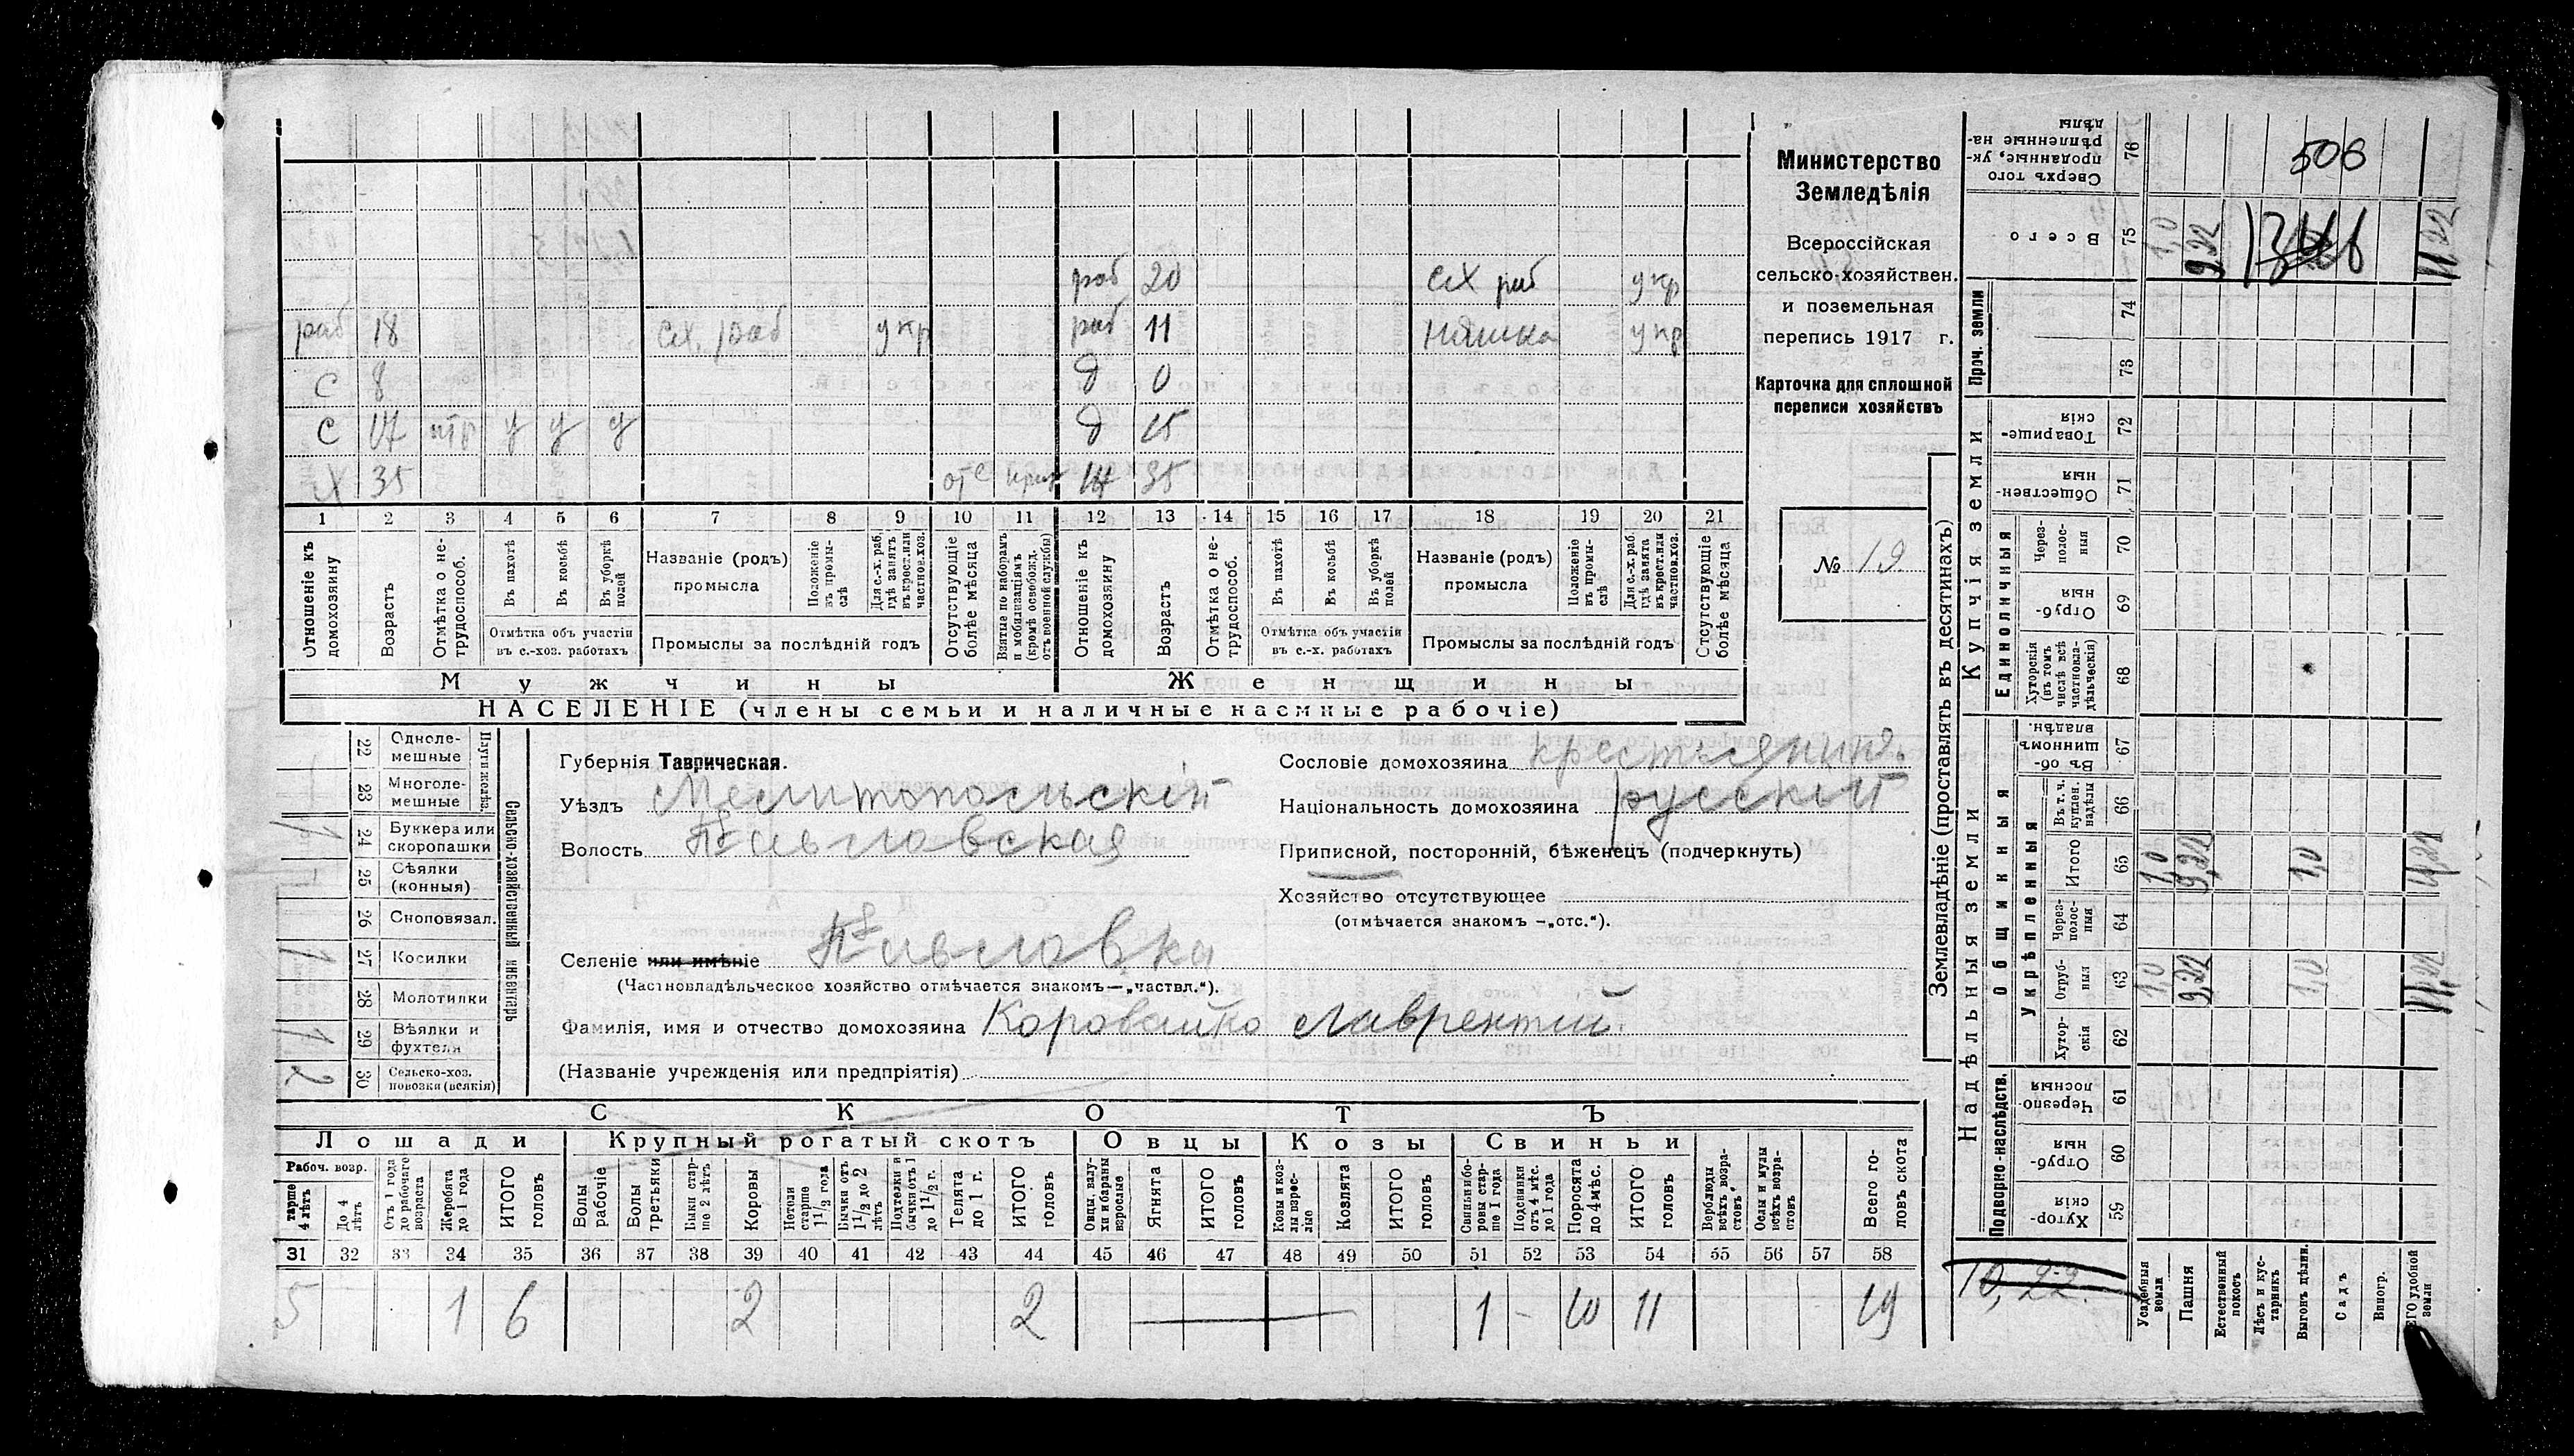 Министерство
Земледѣлія
Всероссійская
сельско-хозяйствен.
и поземельная
перепись 1917 г.
Карточка для сплошной
переписи хозяйствъ
№ 19
раб 20 с.х раб укр
раб 18 с.х. раб укр раб 11 нянька укр
с 8 д 0
с 17 у у у д 15
х 35 отс ж 35
1 2 3 4 5 6 7 8 9 10 11 12 13 14 15 16 17 18 19 20 21
Отношеніе къ домохозяину
Возрастъ
Отмѣтка о не-трудоспособ.
Въ пахотѣ
Въ косьбѣ
Въ уборкѣ полей
Отмѣтка объ участіи въ с.-хоз. работахъ
Названіе (родъ) промысла
Положеніе въ промы-слѣ
Для с.-х. раб. гдѣ занятъ въ крест. или частнов. хоз.
Промыслы за послѣдній годъ
Отсутствующіе болѣе мѣсяца
Взятые по наборамъ и мобилизаціямъ (кромѣ освобожд. отъ военной службы)
Отношеніе къ домохозяину
Возрастъ
Отмѣтка о не-трудоспособ.
Въ пахотѣ
Въ косьбѣ
Въ уборкѣ полей
Отмѣтка объ участіи въ с.-х. работахъ
Названіе (родъ) промысла
Положеніе въ промы-слѣ
Для с.-х. раб. гдѣ занята въ крест. или частнов. хоз.
Промыслы за послѣдній годъ
Отсутствующіе болѣе мѣсяца
Мужчины Женщины
НАСЕЛЕНІЕ (члены семьи и наличные наемные рабочіе)
Губернія Таврическая.
Уѣздъ Мелитопольскій
Волость
Селеніе или имѣніе
(Частновладѣльческое хозяйство отмѣчается знакомъ—„частвл.“).
Фамилія, имя и отчество домохозяина Коровайко Лаврентій
(Названіе учрежденія или предпріятія)
Сословіе домохозяина крестьянинъ
Національность домохозяина русскій
Приписной, посторонній, бѣженецъ (подчеркнуть)
Хозяйство отсутствующее
(отмѣчается знакомъ —„отс.“).
Сельско-хозяйственный инвентарь
22 Одноле-мешные
23 Многоле-мешные
24 Буккера или скоропашки 1
25 Сѣялки (конныя)
26 Сноповязал.
27 Косилки 1
28 Молотилки
29 Вѣялки и фухтеля 1
30 Сельско-хоз. повозки (всякія) 2
СКОТЪ
Лошади Крупный рогатый скотъ Овцы Козы Свиньи
Рабоч. возр.
тарше 4 лѣтъ
До 4 лѣтъ
Отъ 1 года до рабочаго возраста
Жеребята до 1 года
ИТОГО головъ
Волы рабочіе
Волы третьяки
Быки стар-ше 2 лѣтъ
Коровы
Нетели старше 1 1/2 года
Бычки отъ 1 1/2 до 2 лѣтъ
Подтелки и бычки отъ 1 до 1 1/2 г.
Телята до 1 г.
ИТОГО головъ
Овцы, валу-хи и бараны взрослые
Ягнята
ИТОГО головъ
Козы и коз-лы взрос-лые
Козлята
ИТОГО головъ
Свиньи и бо-ровы стар-ше 1 года
Подсвинки отъ 4 мѣс. до 1 года
Поросята до 4 мѣс.
ИТОГО головъ
Верблюды всѣхъ возра-стовъ
Ослы и мулы всѣхъ возра-стовъ
Всего го-ловъ скота
31 32 33 34 35 36 37 38 39 40 41 42 43 44 45 46 47 48 49 50 51 52 53 54 55 56 57 58
5 1 6 2 2 1 – 10 11 19
Землевладѣніе (проставлять въ десятинахъ)
Надѣльныя земли Купчія земли Проч. земли
Подворно-наслѣдств. Общинныя Единоличныя
Укрѣпленныя
Сверхъ того проданные, ук-рѣпленные на-дѣлы 76 506
Всего 75 1,0 9,22 11,22
74
73
Товарище-скія 72
Обществен-ныя 71
Через-полос-ныя 70
Отруб-ныя 69
Хуторскія (въ томъ числѣ всѣ частновла-дѣльческія) 68
Въ об-щинномъ владѣн. 67
Въ т. ч. куплен. надѣлы 66
Итого 65 1,0 9,22 1,0 11,22
Через-полос-ныя 64
Отруб-ныя 63 1,0 9,22 1,0 11,22
Хутор-скія 62
Черезпо-лосныя 61
Отруб-ныя 60
Хутор-скія 59
10,22.
Усадебныя земли
Пашня
Естественный покосъ
Лѣсъ и кус-тарникъ
Выгонъ цѣлин.
Садъ
Виногр.
ЕГО удобной земли